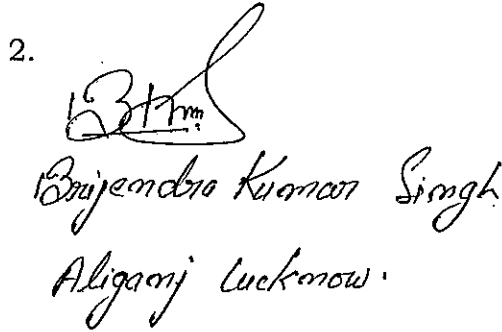 2.
Brijendra Kumar Singh
Aliganj Lucknow.